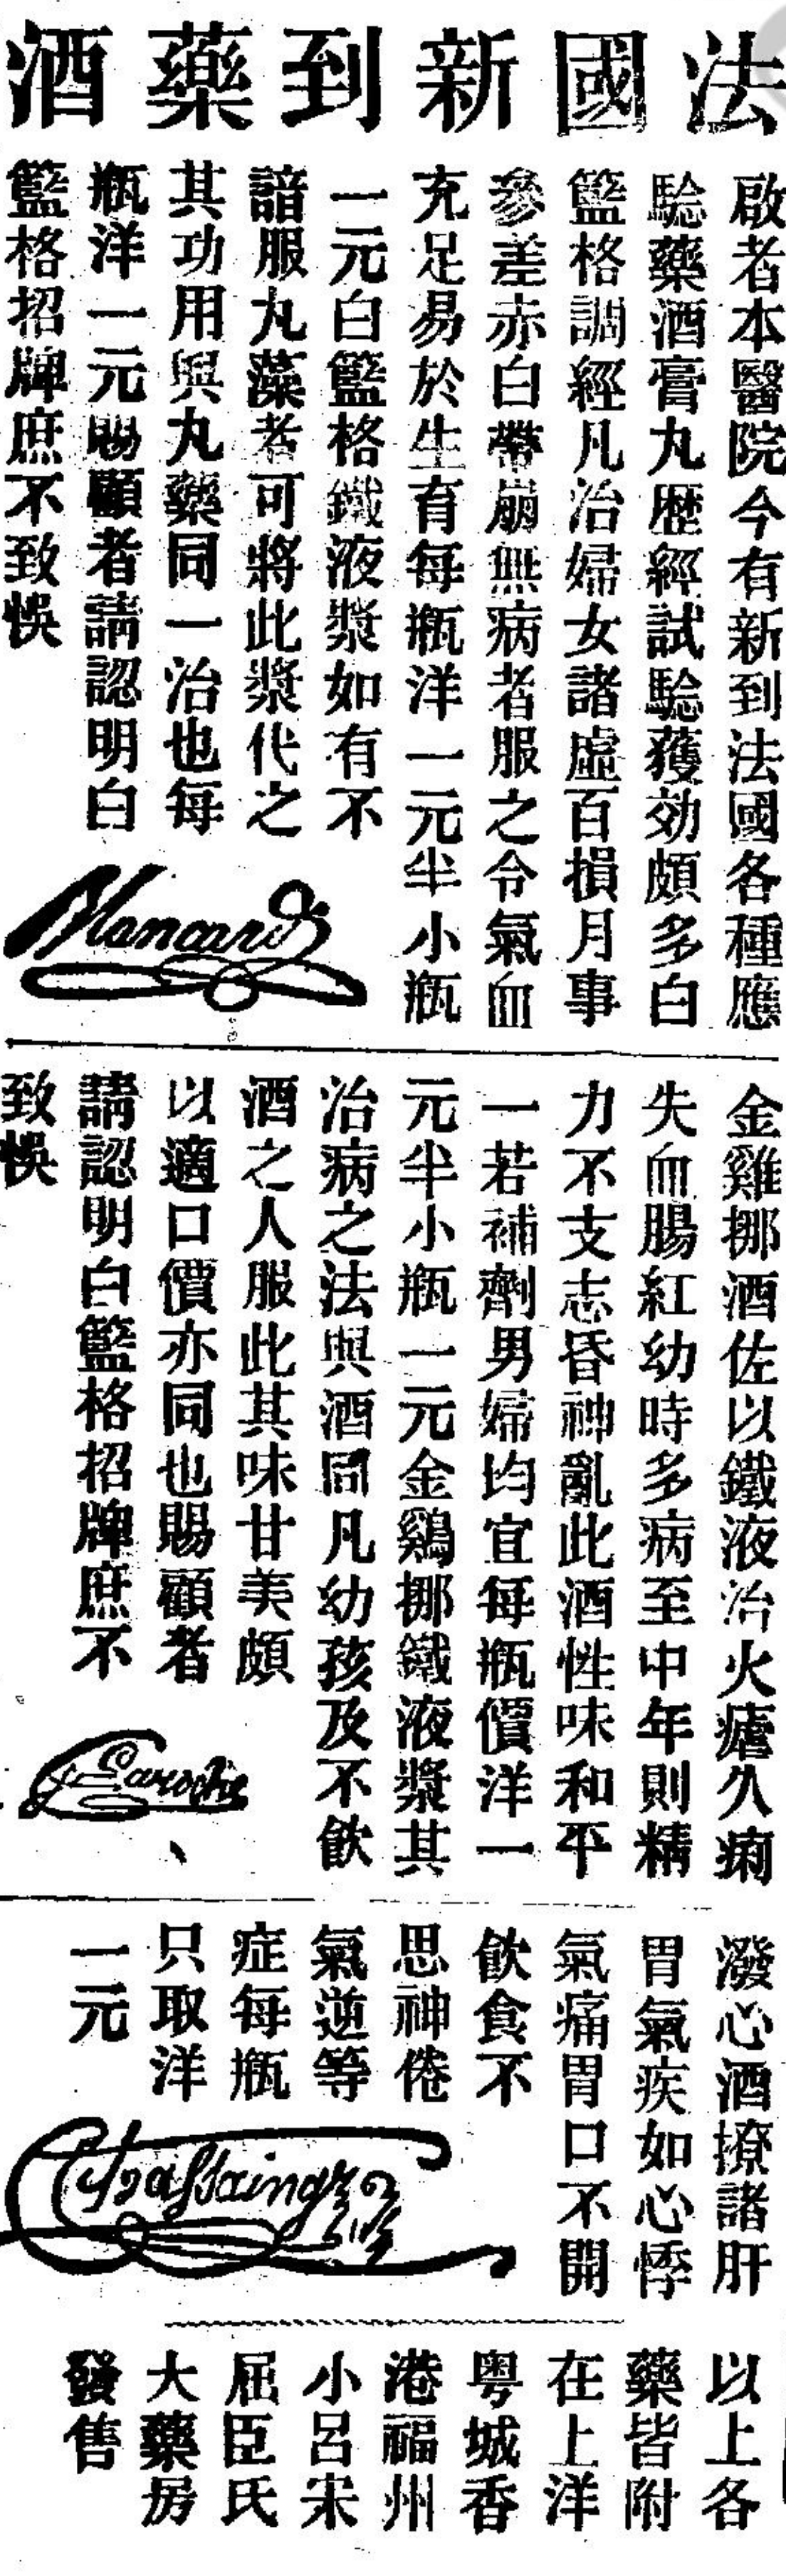 法國新到藥酒
啟者本醫院今有新到法國各種應
騐藥酒膏丸歷經試騐獲効頗多白
籃格調經凡治婦女諸虛百損月事
參差赤白帶崩無病者服之令氣血
充足易於生育每瓶洋一元半小瓶
一元白籃格鐵液漿如有不
諳服丸藥者可將此漿代之
其功用與丸藥同一治也每
瓶洋一元賜顧者請認明白
籃格招牌庶不致悞
Blancard
金雞挪酒佐以鐵液治火瘧久痢
失血腸紅幼時多病至中年則精
力不支志昏神亂此酒性味和平
一若補劑男婦均宜每瓶價洋一
元半小瓶一元金鷄挪鐵液漿其
治病之法與酒同凡幼孩及不飲
酒之人服此其味甘美頗
以適口價亦同也賜顧者
請認明白籃格招牌庶不
致悞
Laroche
潑心酒撩諸肝
胃氣疾如心悸
氣痛胃口不開
飲食不
思神倦
氣逆等
症每瓶
只取洋
一元
Chassaing
以上各
藥皆附
在上洋
粤城香
港福州
小呂宋
屈臣氏
大藥房
發售